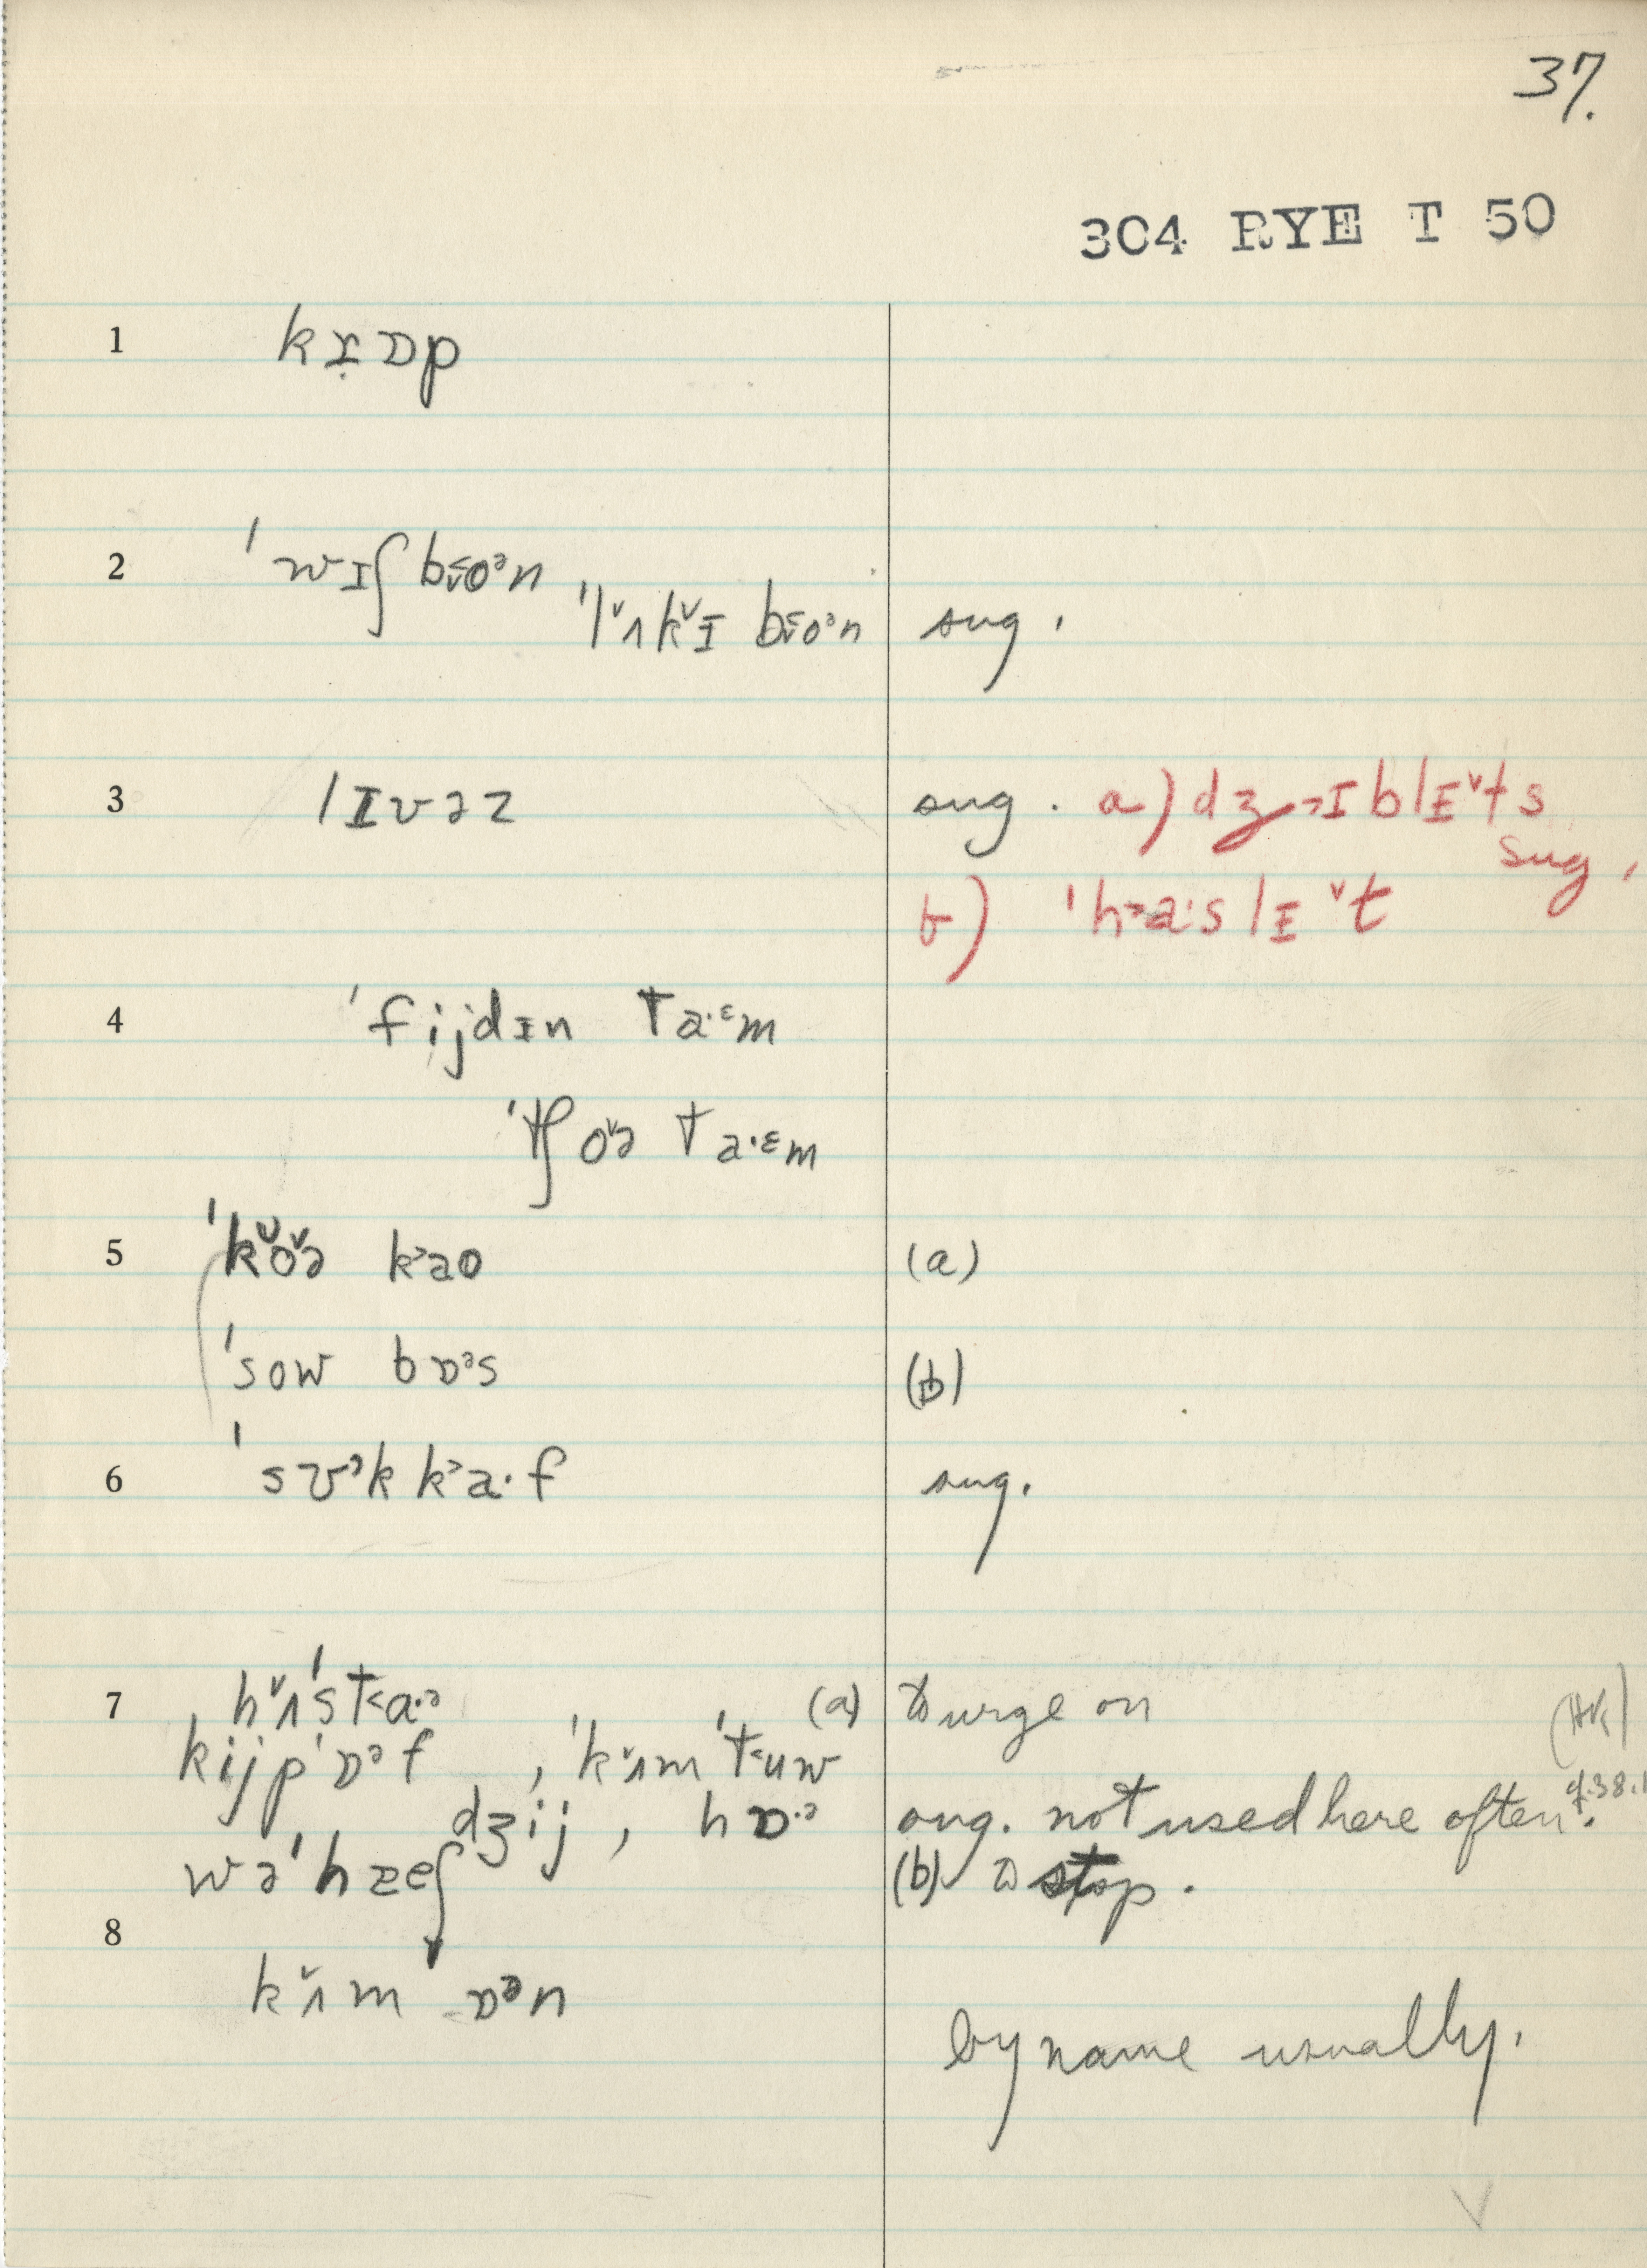 37.
304 RYE T 50
1 kɪ̣ɒp
2 ˈwɪʃ bo˂ᵊn
ˈlʌ˅k˅ɪ bo˂ᵊn sug.
3 lɪvəz sug. a) dʒ˃ɪblɪ˅ts
sug.
b) ˈh˃a·slɪ˅t
4 ˈfijdɪn ta·ᵋm
ˈtʃo˅ə ta·ᵋm
5 ˈk˅o˅ə k˃ao (a)
ˈsow bɒᵊs (b)
6 ˈsʊ˃k k˃a·f sug.
7 h˅ʌˈst˂a·ᵊ (a) to urge on
(AK)
kijpˈɒᵊf , ˈk˅ʌmˈt˂uw
cf. 38.1
dʒij , hɒ·ᵊ sug. not used here often.
wəˈhæeʃ (b) to stop.
8 k˅ʌmˈɒᵊn
by name usually.